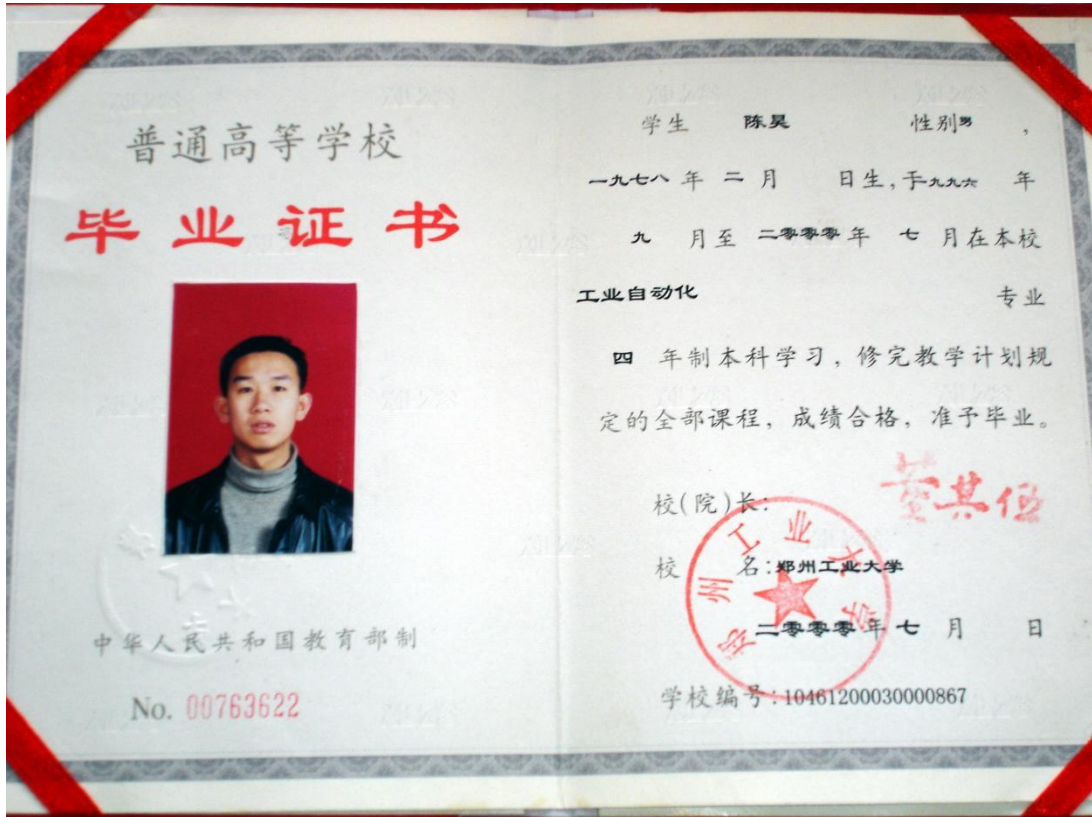 普通高等学校
毕业证书
中华人民共和国教育部制
No. 00763622
学生 陈昊 性别男，
一九七八年二月 日生，于九九六 年
九 月至 二零零零年 七 月在本校
工业自动化 专业
四 年制本科学习，修完教学计划规
定的全部课程，成绩合格，准予毕业。
校(院)长: 董其伍
校 名:郑州工业大学
二零零零年七 月 日
学校编号:10461200030000867
郑州工业大学